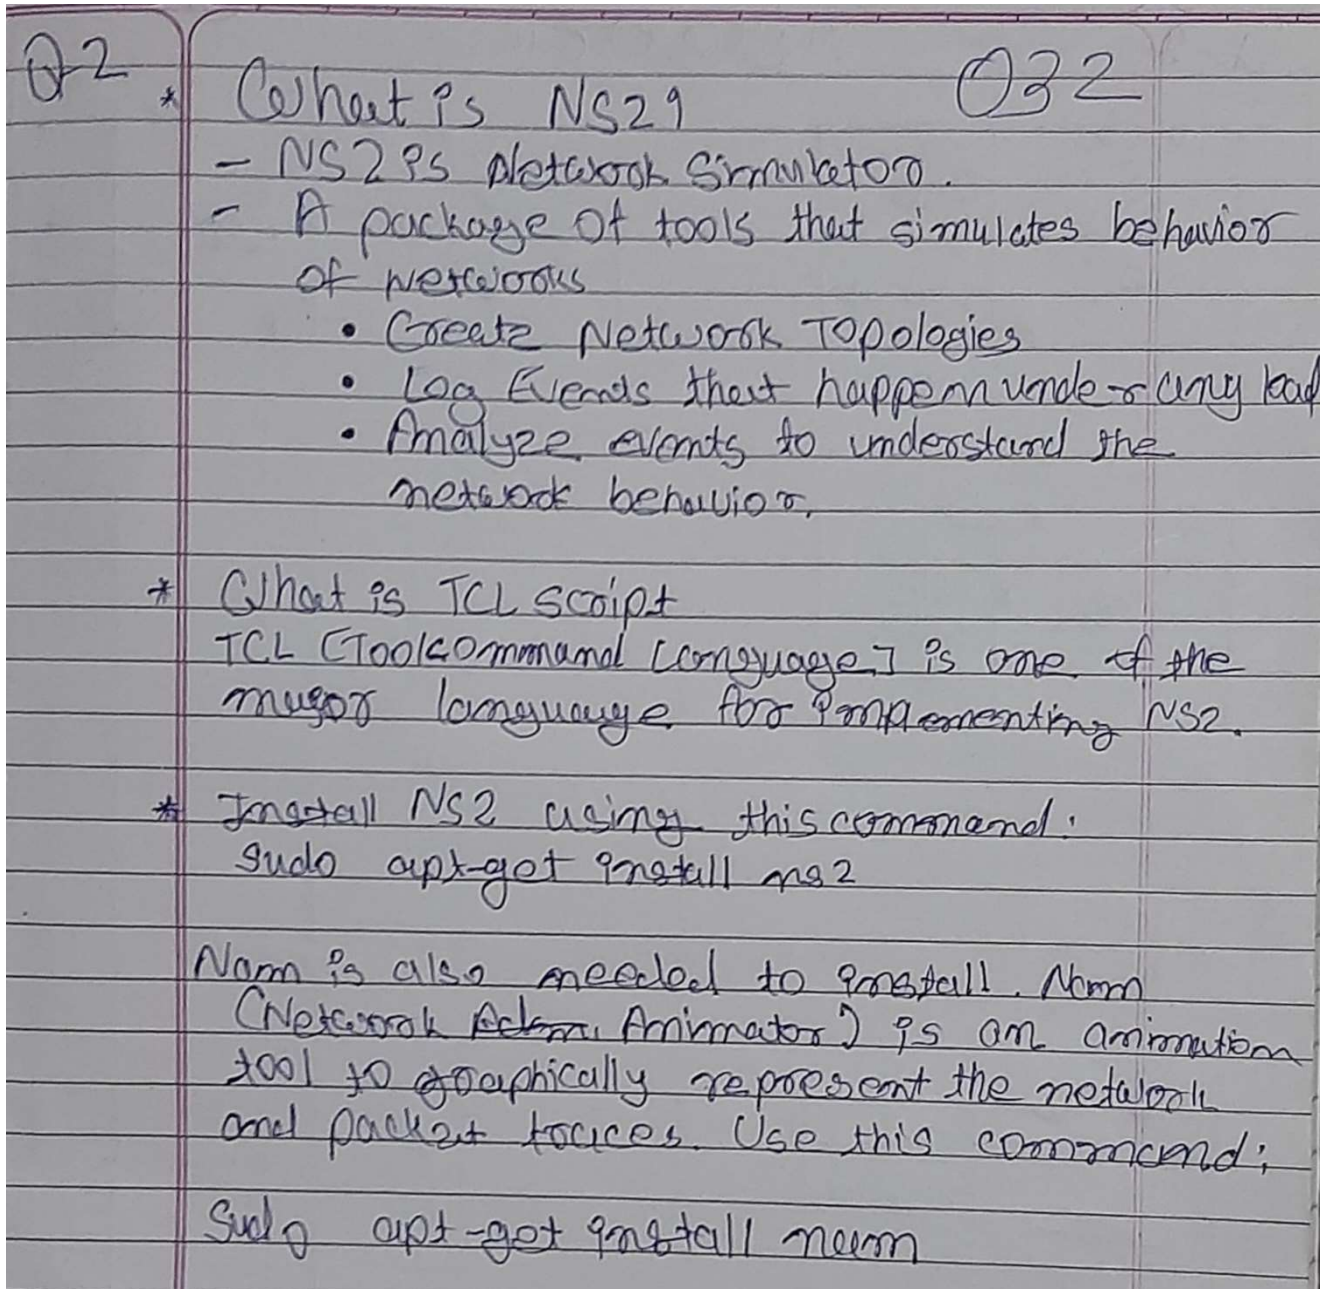 Q2
032
* What is NS2?
- NS2 is Network Simulator.
- A package of tools that simulates behavior
of networks
• Create Network Topologies
• Log Events that happen under any load
• Analyze events to understand the
network behavior.
* What is TCL script
TCL [Toolcommand language] is one of the
major language for implementing NS2.
* Install NS2 using this command:
sudo apt-get install ns2
Nam is also needed to install. Nam
(Network Animator) is an animation
tool to graphically represent the network
and packet traces. Use this command:
Sudo apt-get install nam